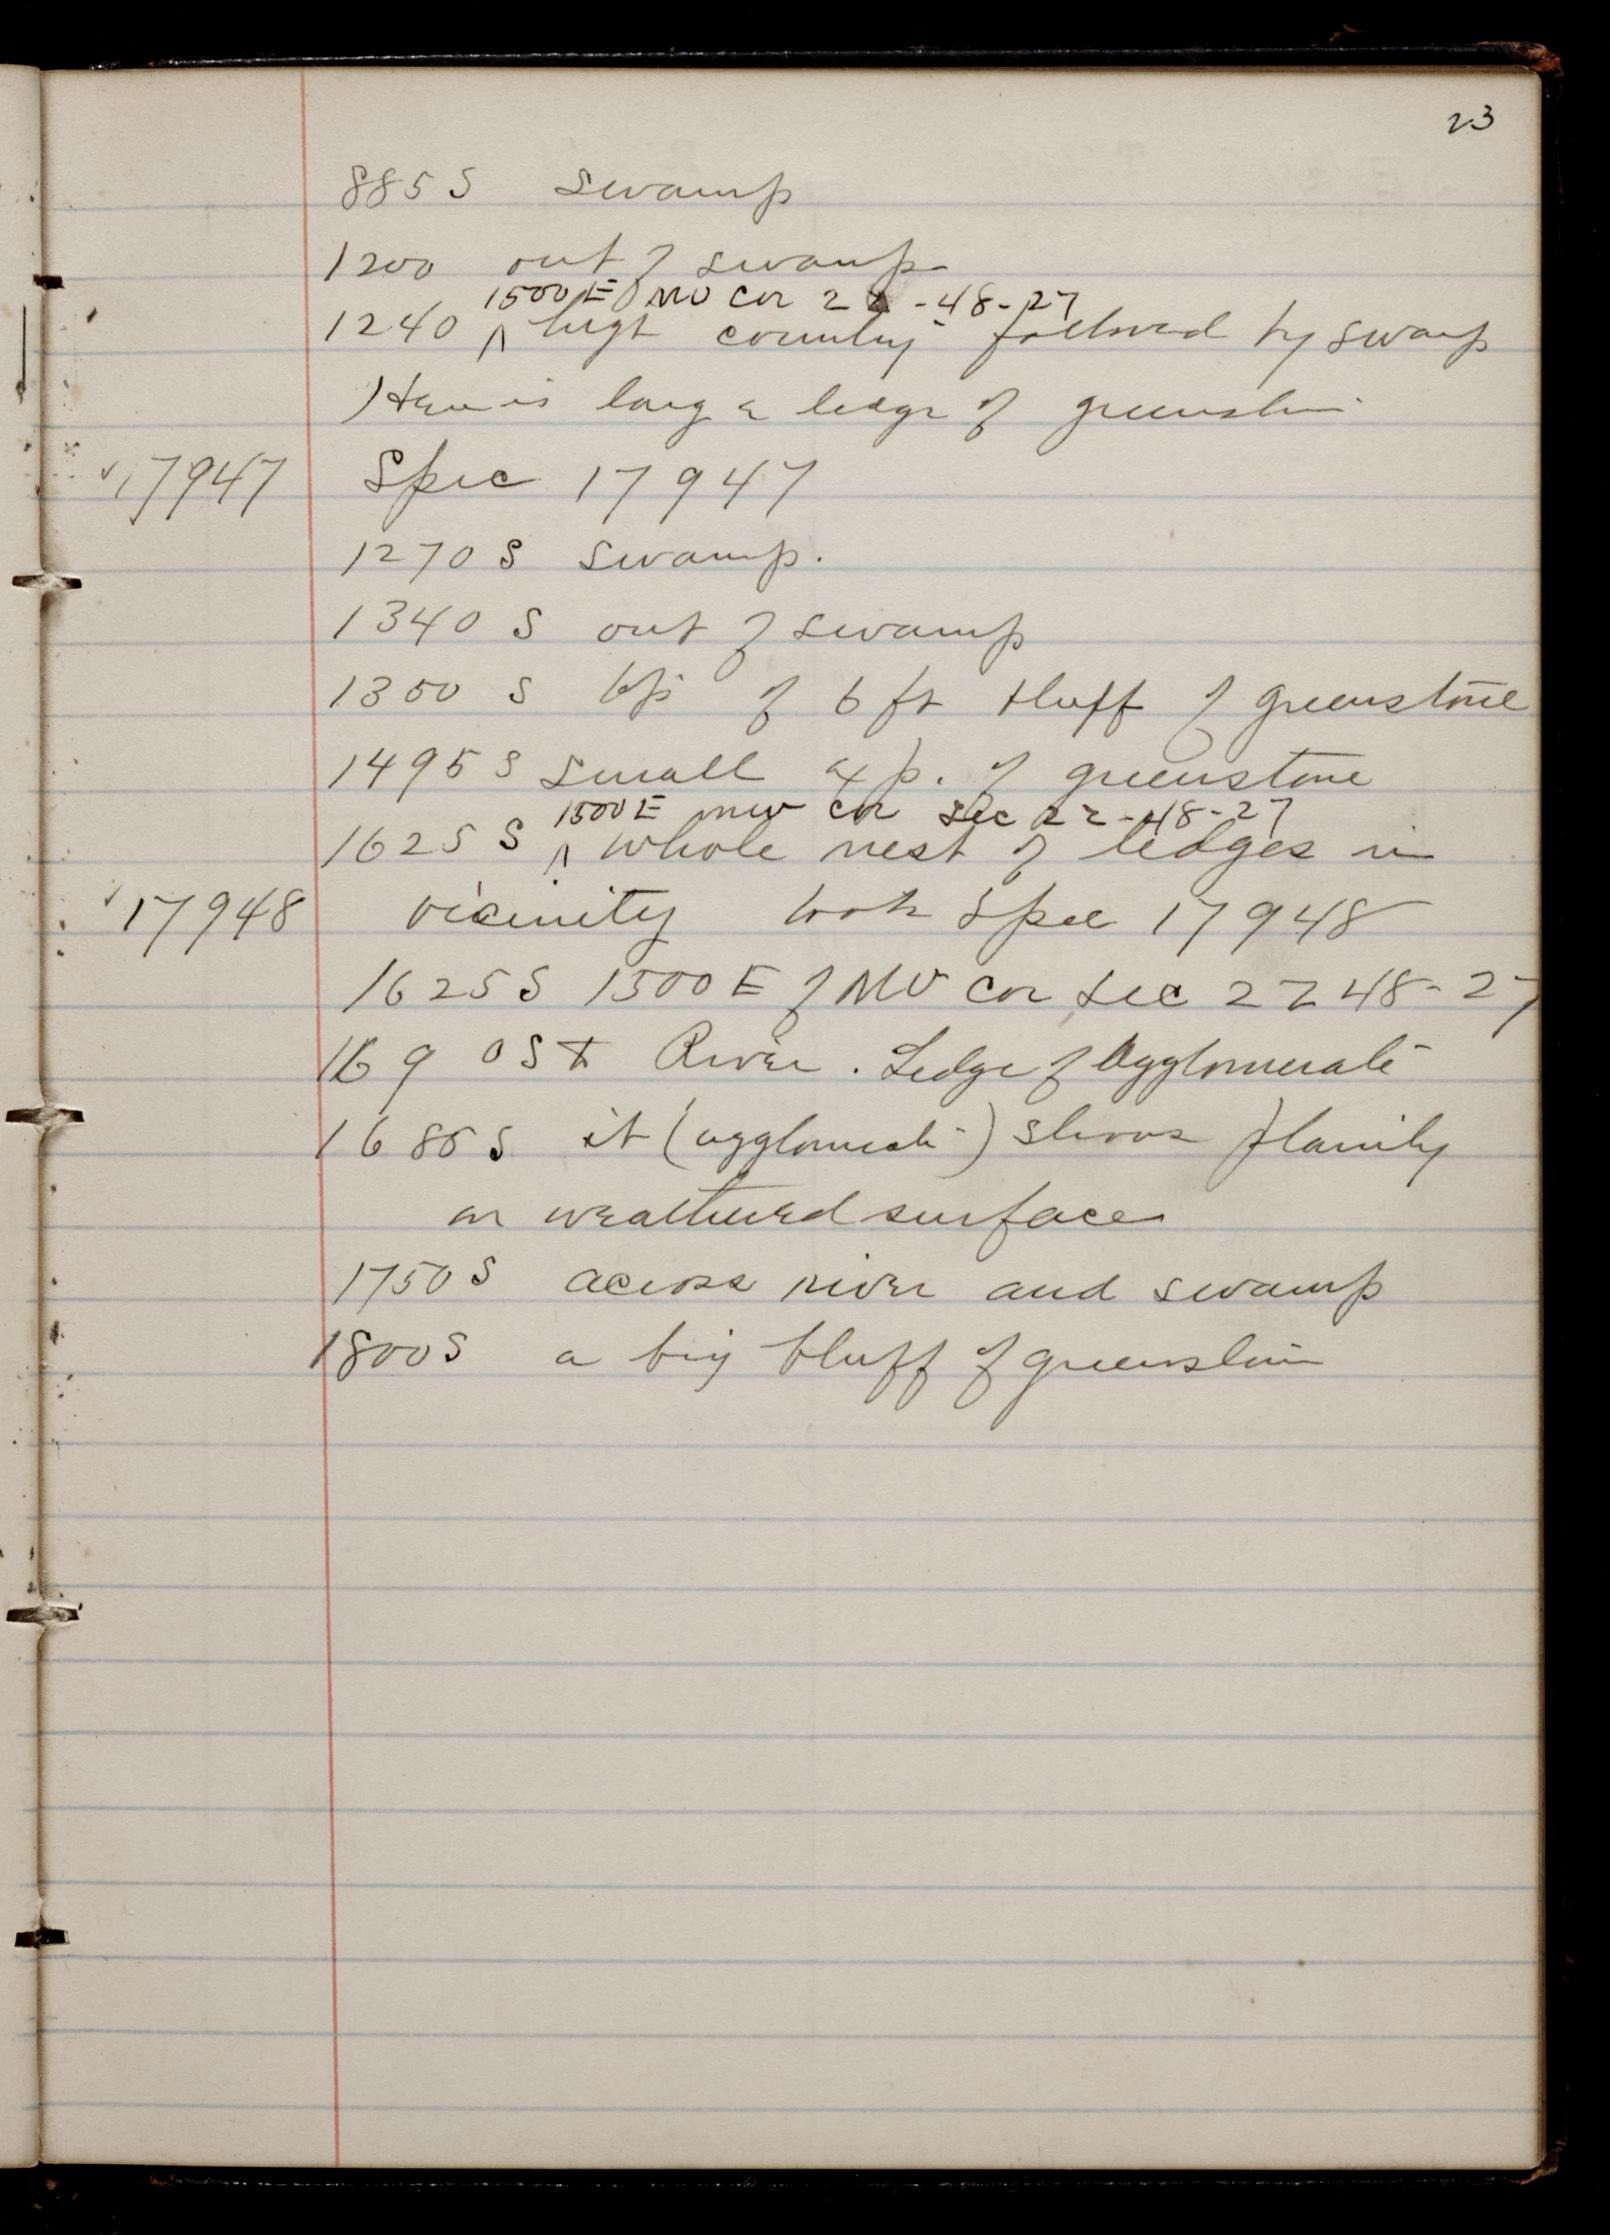 23
885 S swamp
1200 out of swamp
1500 E NW cor 22 - 48 - 27
1240 ^ high country followed by swamp
Here is large ledge of greenstone
17947 Spec 17947
1270 S swamp.
1340 S out of swamp
1350 S top of 6 ft bluff of greenstone
1495 S small exp. of greenstone
1500 E NW cor sec 22-48-27
1625 S ^ whole nest of ledges in
17948 vicinity took Spec 17948
1625 S 1500 E of NW cor sec 22 48-27
1690 S ± River. Ledge of Agglomerate
1685 S it (agglomerate) shows plainly
on weathered surface
1750 S across river and swamp
1800 S a big bluff of greenstone